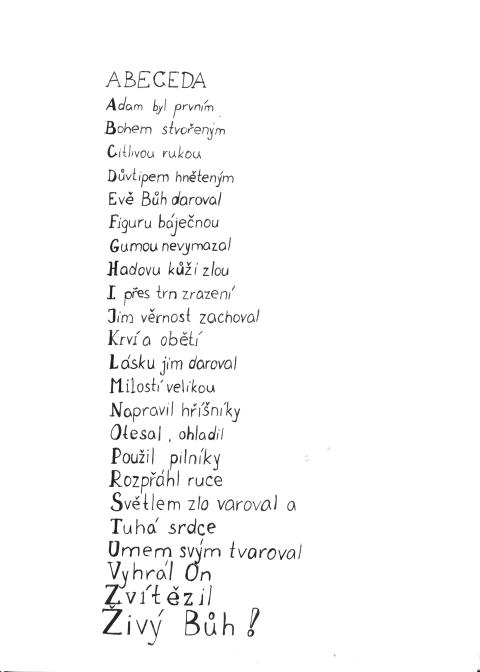 ABECEDA
Adam byl prvním
Bohem stvořeným
Citlivou rukou
Důvtipem hněteným
Evě Bůh daroval
Figuru báječnou
Gumou nevymazal
Hadovu kůži zlou
I přes trn zrazení
Jim věrnost zachoval
Krví a obětí
Lásku jim daroval
Milostí velikou
Napravil hříšníky
Otesal, ohladil
Použil pilníky
Rozpřáhl ruce
Světlem zlo varoval a
Tuhá srdce
Umem svým tvaroval
Vyhrál On
Zvítězil
Živý Bůh!